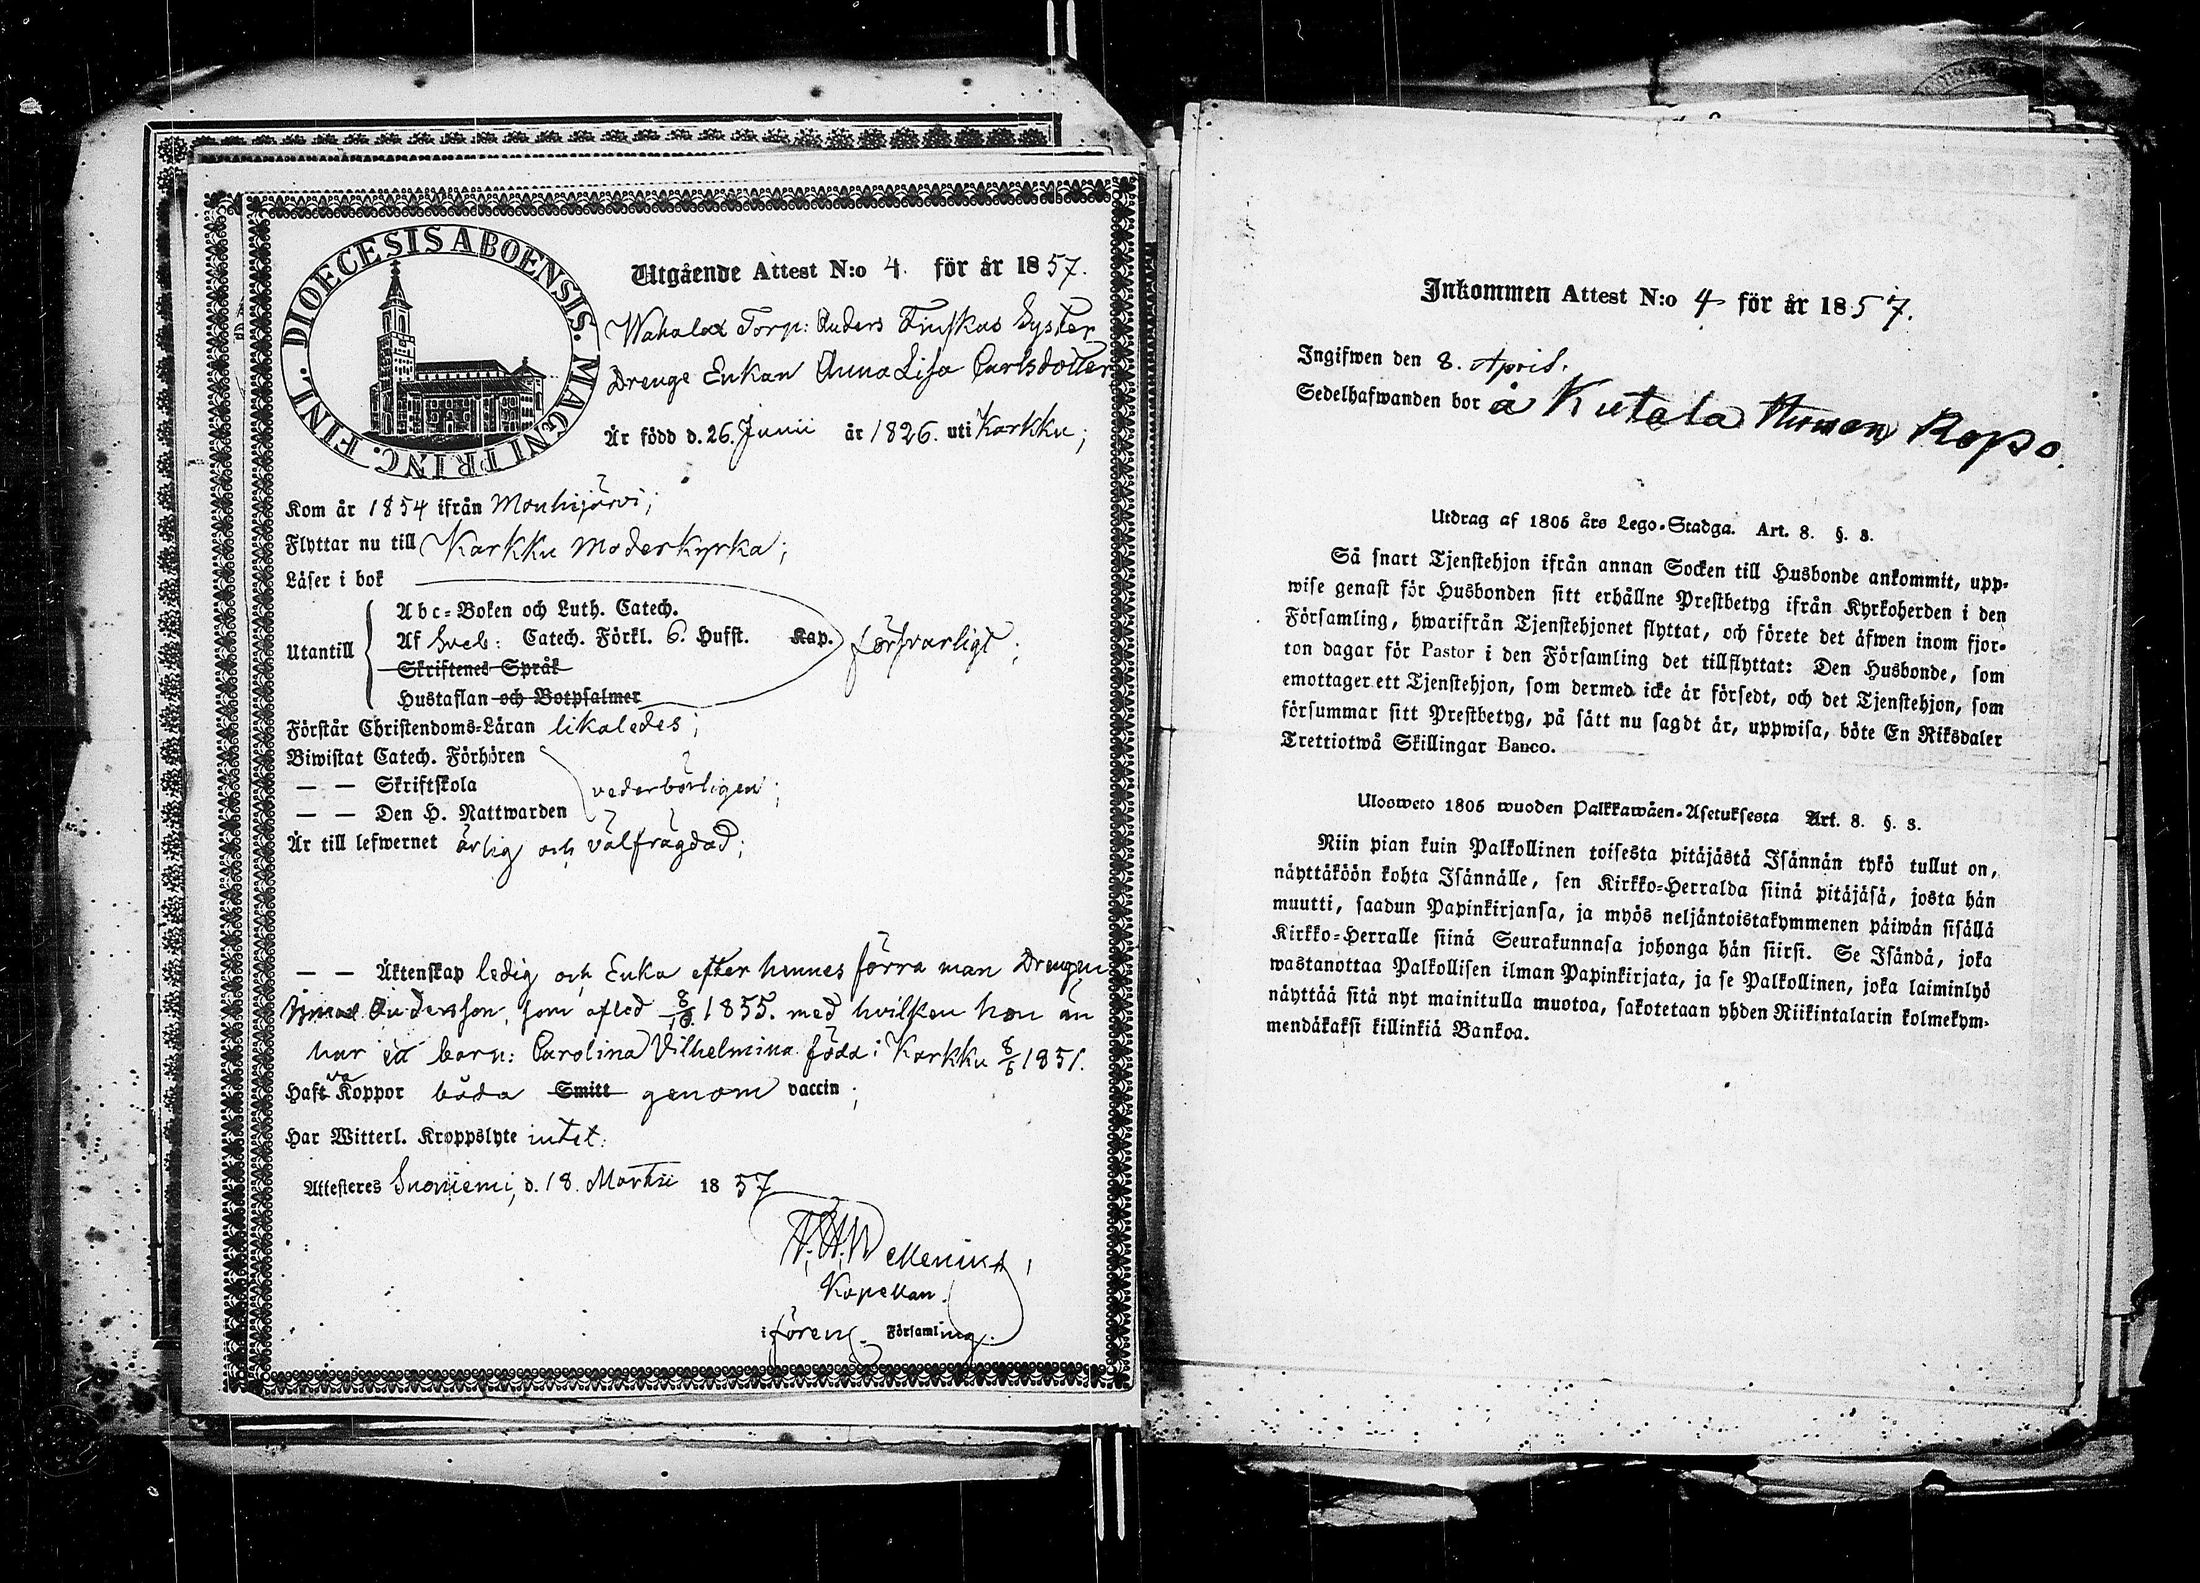 DIOECESIS ABOENSIS. MAGNI PRINC. FINL.
Utgående Attest N:o 4. för år 1857.
Torp: Anders Syster
Drenge Enkan Anna Lisa Carlsdotter
Är född d. 26. Junii år 1826. uti Karkku;
Kom år 1854 ifrån Mouhijärvi;
Flyttar nu till Karkku Moderkyrka;
Läser i bok
Abc-Boken och Luth. Catech.
Utantill Af Sveb: Catech. Förkl. 6. Hufst. Kap. försvarligt;
Skriftenes Språk
Hustaflan och Botpsalmer
Förstår Christendoms-Läran likaledes;
Biwistat Catech. Förhören
— — Skriftskola vederbörligen;
— — Den H. Nattwarden
Är till lefwernet ärlig och välfrägdad;
— — Äktenskap ledig och Enka efter hennes förra man Drengen
Andersson, som afled 8/10 1855. med hvilken hon än
har barn: Carolina Vilhelmina född i Karkku 8/6 1851.
Haft Koppor båda Smitt genom vaccin;
Har Witterl. Kroppslyte intet.
Attesteres Suoniemi, d. 18. Martii 1857
Kapellan.
i Församling.
Inkommen Attest N:o 4 för år 1857.
Ingifwen den 8. April.
Sedelhafwanden bor å Kutala Ropo.
Utdrag af 1805 års Lego-Stadga. Art. 8. §. 3.
Så snart Tjenstehjon ifrån annan Socken till Husbonde ankommit, upp-
wise genast för Husbonden sitt erhållne Prestbetyg ifrån Kyrkoherden i den
Församling, hwarifrån Tjenstehjonet flyttat, och förete det äfwen inom fjor-
ton dagar för Pastor i den Församling det tillflyttat: Den Husbonde, som
emottager ett Tjenstehjon, som dermed icke är försedt, och det Tjenstehjon, som
försummar sitt Prestbetyg, på sätt nu sagdt är, uppwisa, böte En Riksdaler
Trettiotwå Skillingar Banco.
Ulosweto 1805 wuoden Palkkawäen-Asetuksesta Art. 8. §. 3.
Niin pian kuin Palkollinen toisesta pitäjästä Isännän tykö tullut on,
näyttäköön kohta Isännälle, sen Kirkko-Herralda siinä pitäjäsä, josta hän
muutti, saadun Papinkirjansa, ja myös neljäntoistakymmenen päiwän sisällä
Kirkko-Herralle siinä Seurakunnasa johonga hän siirsi. Se Isändä, joka
wastanottaa Palkollisen ilman Papinkirjata, ja se Palkollinen, joka laiminlyö
näyttää sitä nyt mainitulla muotoa, sakotetaan yhden Riikintalarin kolmekym-
mendäkaksi killinkiä Bankoa.